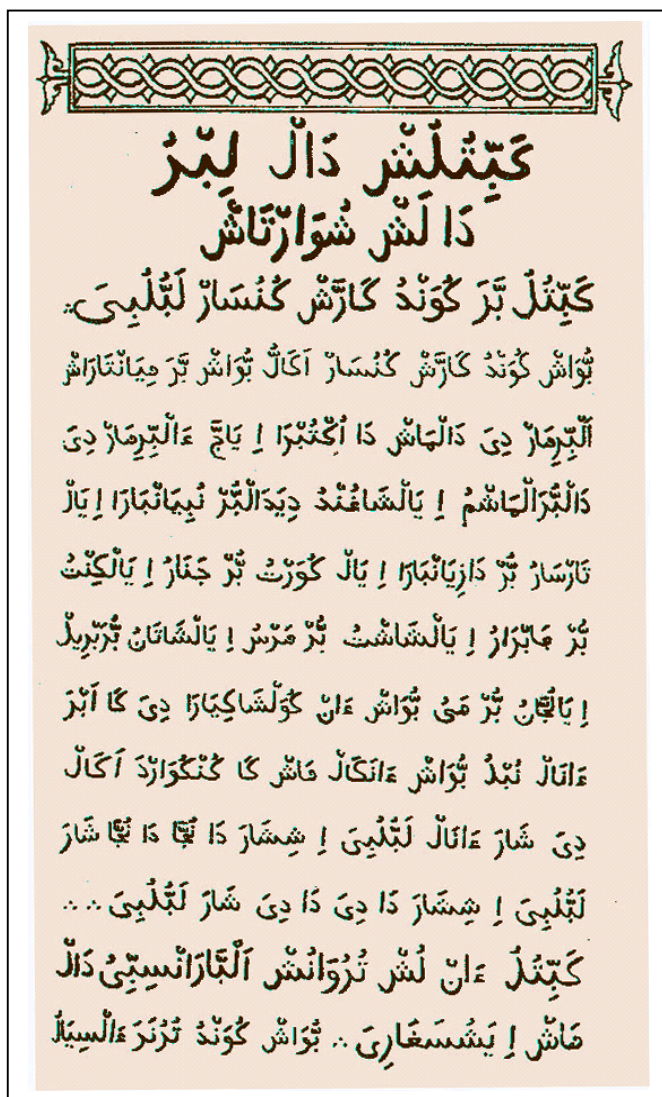 كَبِّتُلُشْ دَالْ لِبْرُ
دَا لَشْ شُوَارْتَاشْ
كَبِّتُلُ بَّرَ كُوَنْدُ كَارَّشْ كُنُسَارْ لَبُّلُبِيَ ∴
بُّوَاشْ كُوَنْدُ كَارَّشْ كُنُسَارْ اَكَالُّ بُّوَاشْ بَّرَ مِيَانْتَارَاشْ
اَلْبِّرِمَارْ دِيَ دَالْمَاشْ دَا اُكْتُبْرَا اِ يَاجَّ ءَالْبِّرِمَارْ دِيَ
دَالْبُّرَالْمَاشْمُ اِ يَالْشَاغُنْدُ دِيَدَالْبُّرْ نُبِيَانْبَارَا اِ يَالْ
تَارْسَارُ بُّرْ دَازِيَانْبَارَا اِ يَالْ كُوَرْتُ بُّرْ جَنَارُ اِ يَالْكِنْتُ
بُّرْ هَابْرَارُ اِ يَالْشَاشْتُ بُّرْ مَرْسُ اِ يَالْشَاتَانُ بُّرْبْرِيلْ
بُّرْ مَيُ بُّوَاشْ ءَانْ كُوَلْشَاكِيَارَا دِيَ كَا اَبْرَ
ءَانَالْ نُبْلُ بُّوَاشْ ءَانَكَالْ مَاشْ كَا كُنْكُوَارْدَ اَكَالْ
دِيَ شَارَ ءَانَالْ لَبُّلُبِيَ اِ شِشَارَ دَا نُجَّا دَا نُجَّا شَارَ
لَبُّلُبِيَ اِ شِشَارَ دَا دِيَ دَا دِيَ شَارَ لَبُّلُبِيَ ∴ ∴
كَبِّتُلُ ءَانْ لُشْ تُرُوَانُشْ اَلْبَّارَانْسِبِّيُ دَالْ
مَاشْ اِ يَشُسَغَارِيَ ∴ بُّوَاشْ كُوَنْدُ تُرُنَرَ ءَالْسِيَالُ